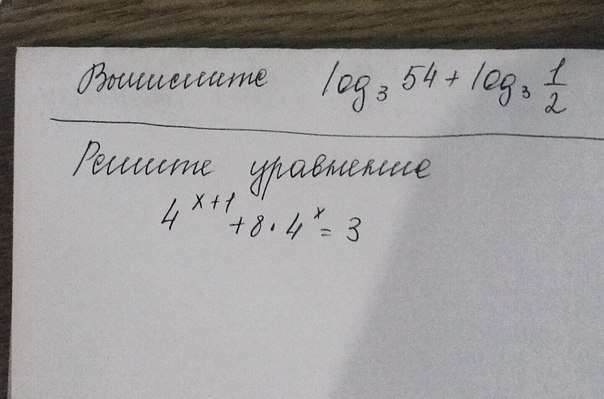 Вычислите log₃ 54 + log₃ 1/2
Решите уравнение
4^(x+1) + 8 · 4^x = 3